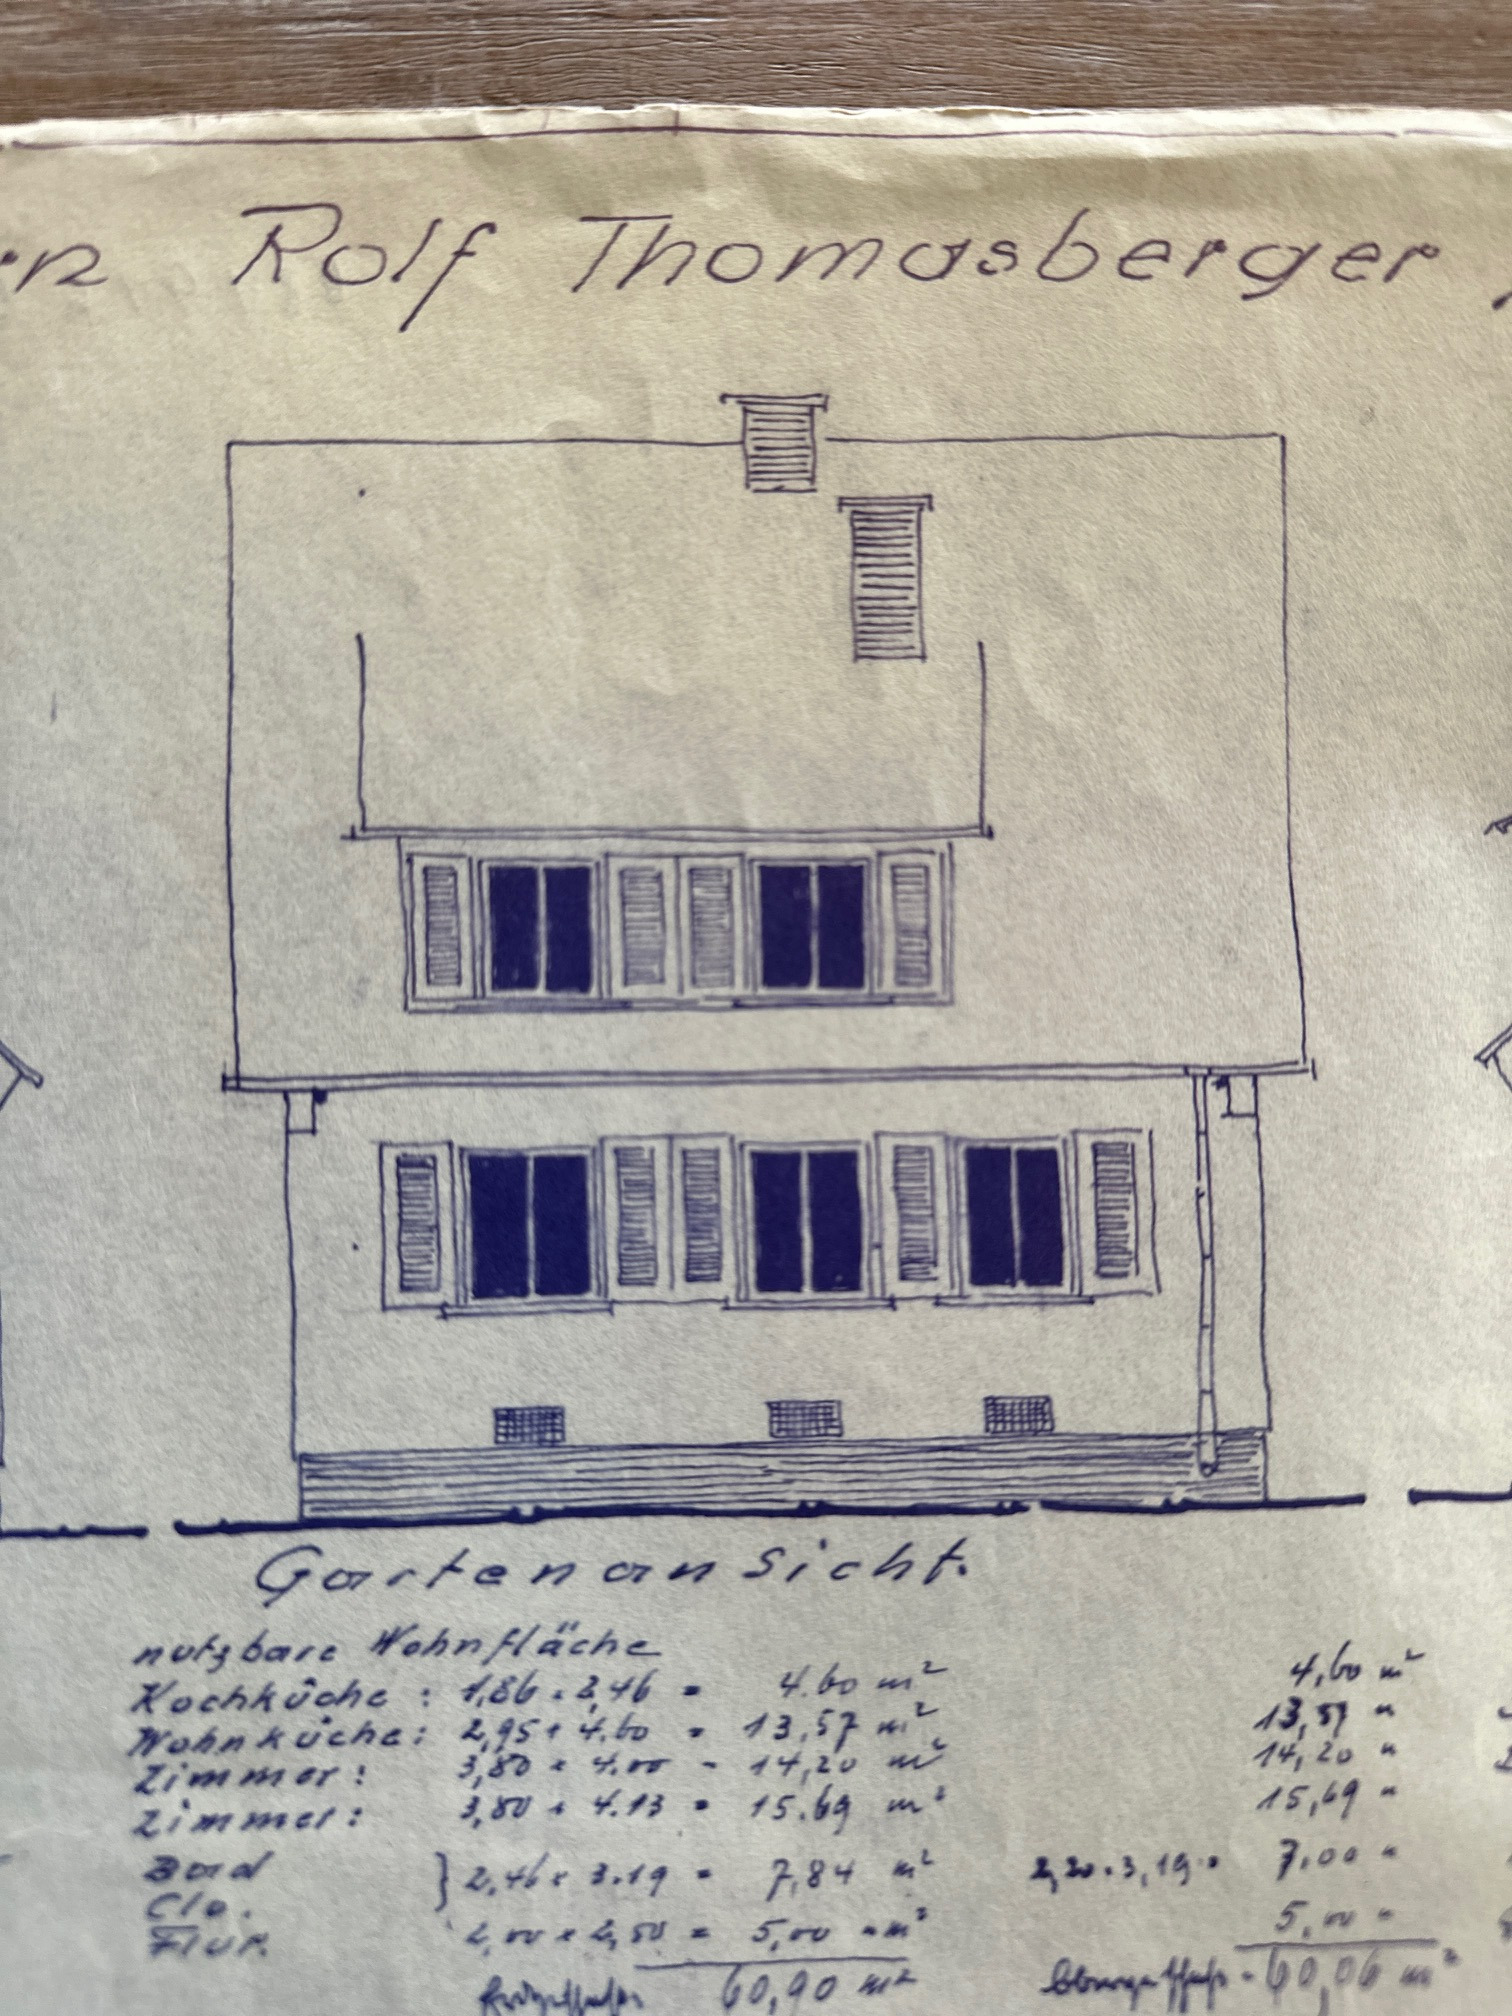 Rolf Thomasberger
Gartenansicht.
nutzbare Wohnfläche
Kochküche: 1,86 × 2,46 = 4.60 m² 4,60 m²
Wohnküche: 2,95 × 4.60 = 13,57 m² 13,57 "
Zimmer: 3,80 × 4.00 = 14,20 m² 14,20 "
Zimmer: 3,80 × 4.13 = 15.69 m² 15,69 "
Bad
Clo. } 2,46 × 3.19 = 7,84 m² 2,20 × 3,19 = 7.00 "
Flur. 2,00 × 2,50 = 5,00 m² 5,00 "
Erdgeschoss 60,90 m² Obergeschoss = 60,06 m²